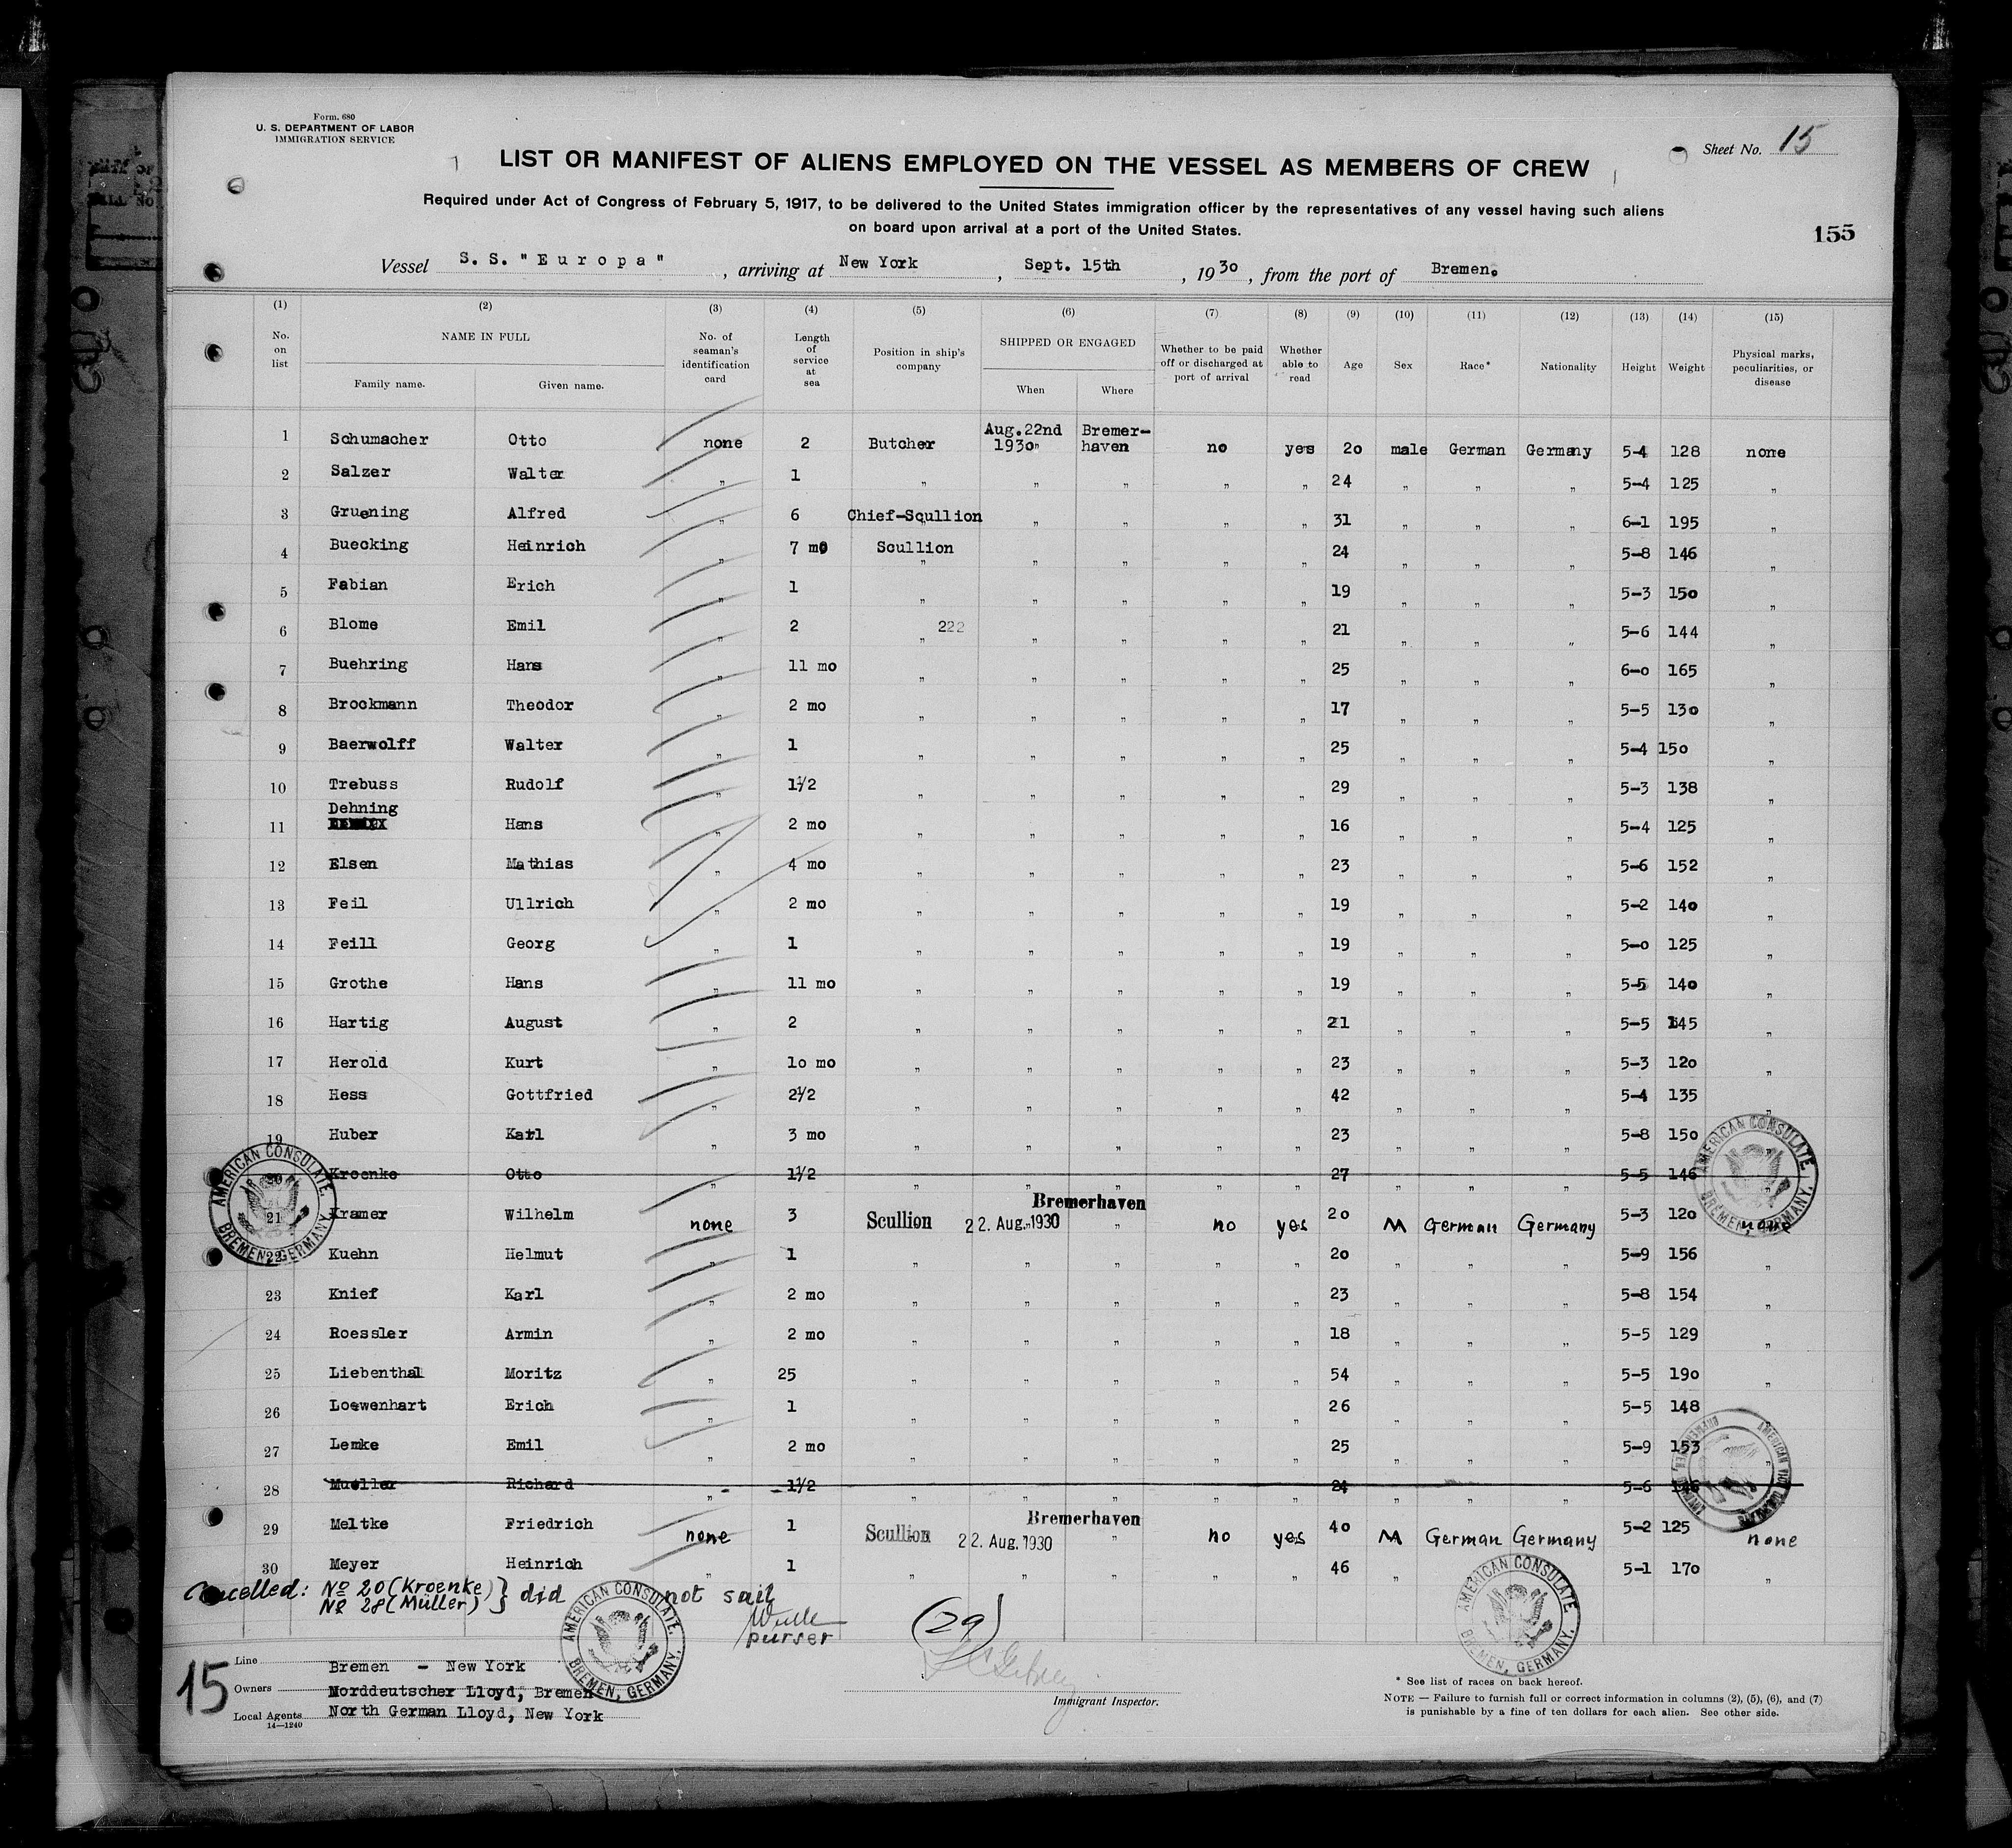 Form. 680
U. S. DEPARTMENT OF LABOR
IMMIGRATION SERVICE
Sheet No. 15
LIST OR MANIFEST OF ALIENS EMPLOYED ON THE VESSEL AS MEMBERS OF CREW
Required under Act of Congress of February 5, 1917, to be delivered to the United States immigration officer by the representatives of any vessel having such aliens
on board upon arrival at a port of the United States.
155
Vessel S. S. "Europa" , arriving at New York , Sept. 15th , 1930 , from the port of Bremen.
(1) (2) (3) (4) (5) (6) (7) (8) (9) (10) (11) (12) (13) (14) (15)
No. on list
NAME IN FULL
Family name. Given name.
No. of seaman's identification card
Length of service at sea
Position in ship's company
SHIPPED OR ENGAGED
When Where
Whether to be paid off or discharged at port of arrival
Whether able to read
Age Sex Race* Nationality Height Weight
Physical marks, peculiarities, or disease
1 Schumacher Otto none 2 Butcher Aug.22nd 1930 Bremer-haven no yes 20 male German Germany 5-4 128 none
2 Salzer Walter " 1 " " " " " 24 " " " 5-4 125 "
3 Gruening Alfred " 6 Chief-Scullion " " " " 31 " " " 6-1 195 "
4 Buecking Heinrich " 7 mo Scullion " " " " 24 " " " 5-8 146 "
5 Fabian Erich " 1 " " " " " 19 " " " 5-3 150 "
6 Blome Emil " 2 " 222 " " " " 21 " " " 5-6 144 "
7 Buehring Hans " 11 mo " " " " " 25 " " " 6-0 165 "
8 Brockmann Theodor " 2 mo " " " " " 17 " " " 5-5 130 "
9 Baerwolff Walter " 1 " " " " " 25 " " " 5-4 150 "
10 Trebuss Rudolf " 1½ " " " " " 29 " " " 5-3 138 "
11 Dehning Hans " 2 mo " " " " " 16 " " " 5-4 125 "
12 Elsen Mathias " 4 mo " " " " " 23 " " " 5-6 152 "
13 Feil Ullrich " 2 mo " " " " " 19 " " " 5-2 140 "
14 Feill Georg " 1 " " " " " 19 " " " 5-0 125 "
15 Grothe Hans " 11 mo " " " " " 19 " " " 5-5 140 "
16 Hartig August " 2 " " " " " 21 " " " 5-5 145 "
17 Herold Kurt " 10 mo " " " " " 23 " " " 5-3 120 "
18 Hess Gottfried " 2½ " " " " " 42 " " " 5-4 135 "
19 Huber Karl " 3 mo " " " " " 23 " " " 5-8 150 "
20 Kroenke Otto " 1½ " " " " " 27 " " " 5-5 146 "
21 Kramer Wilhelm none 3 Scullion 22. Aug. 1930 Bremerhaven no yes 20 M German Germany 5-3 120 none
22 Kuehn Helmut " 1 " " " " " 20 " " " 5-9 156 "
23 Knief Karl " 2 mo " " " " " 23 " " " 5-8 154 "
24 Roessler Armin " 2 mo " " " " " 18 " " " 5-5 129 "
25 Liebenthal Moritz " 25 " " " " " 54 " " " 5-5 190 "
26 Loewenhart Erich " 1 " " " " " 26 " " " 5-5 148
27 Lemke Emil " 2 mo " " " " " 25 " " " 5-9 153 "
28 Mueller Richard " 1½ " " " " " 24 " " " 5-6
29 Meltke Friedrich none 1 Scullion 22. Aug. 1930 Bremerhaven no yes 40 M German Germany 5-2 125 none
30 Meyer Heinrich " 1 " " " " " 46 " " " 5-1 170 "
Cancelled: No 20 (Kroenke) } did not sail
No 28 (Müller)
purser
(29)
AMERICAN CONSULATE. BREMEN, GERMANY.
AMERICAN CONSULATE. BREMEN, GERMANY.
AMERICAN CONSULATE. BREMEN, GERMANY.
AMERICAN CONSULATE. BREMEN, GERMANY.
AMERICAN CONSULATE. BREMEN, GERMANY.
15
Line Bremen - New York
Owners Norddeutscher Lloyd, Bremen
Local Agents North German Lloyd, New York
14—1240
Immigrant Inspector.
* See list of races on back hereof.
NOTE — Failure to furnish full or correct information in columns (2), (5), (6), and (7)
is punishable by a fine of ten dollars for each alien. See other side.